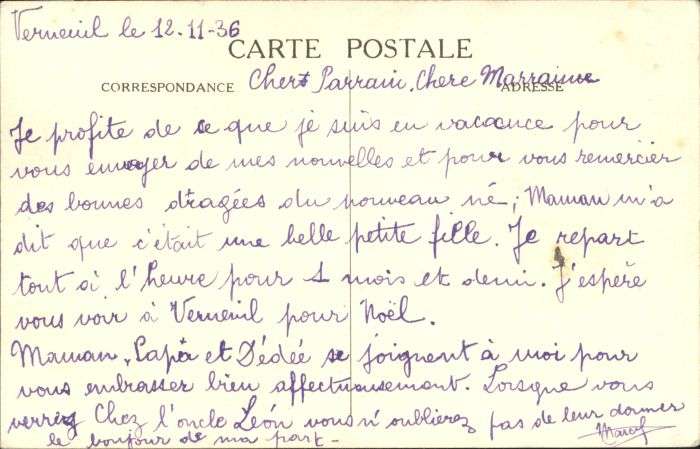 Verneuil le 12-11-36
CARTE POSTALE
CORRESPONDANCE
ADRESSE
Cher Parrain, Chere Marraine
Je profite de ce que je suis en vacance pour
vous envoyer de mes nouvelles et pour vous remercier
des bonnes dragées du nouveau né, Maman m'a
dit que c'était une belle petite fille. Je repart
tout à l'heure pour 1 mois et demi. J'espère
vous voir à Verneuil pour Noël.
Maman, Papa et Dédée se joignent à moi pour
vous embrasser bien affectueusement. Lorsque vous
verrez Chez l'oncle Léon vous n'oublierez pas de leur donner
le bonjour de ma part -
Marcel